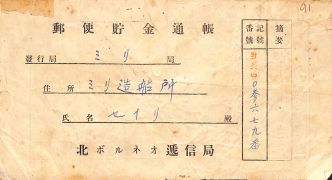 91
郵便貯金通帳
發行局 ミリ 局
住所 ミリ造船所
氏名 セイリ 殿
北ボルネオ遞信局
摘要
記號番號
〇参六七九番